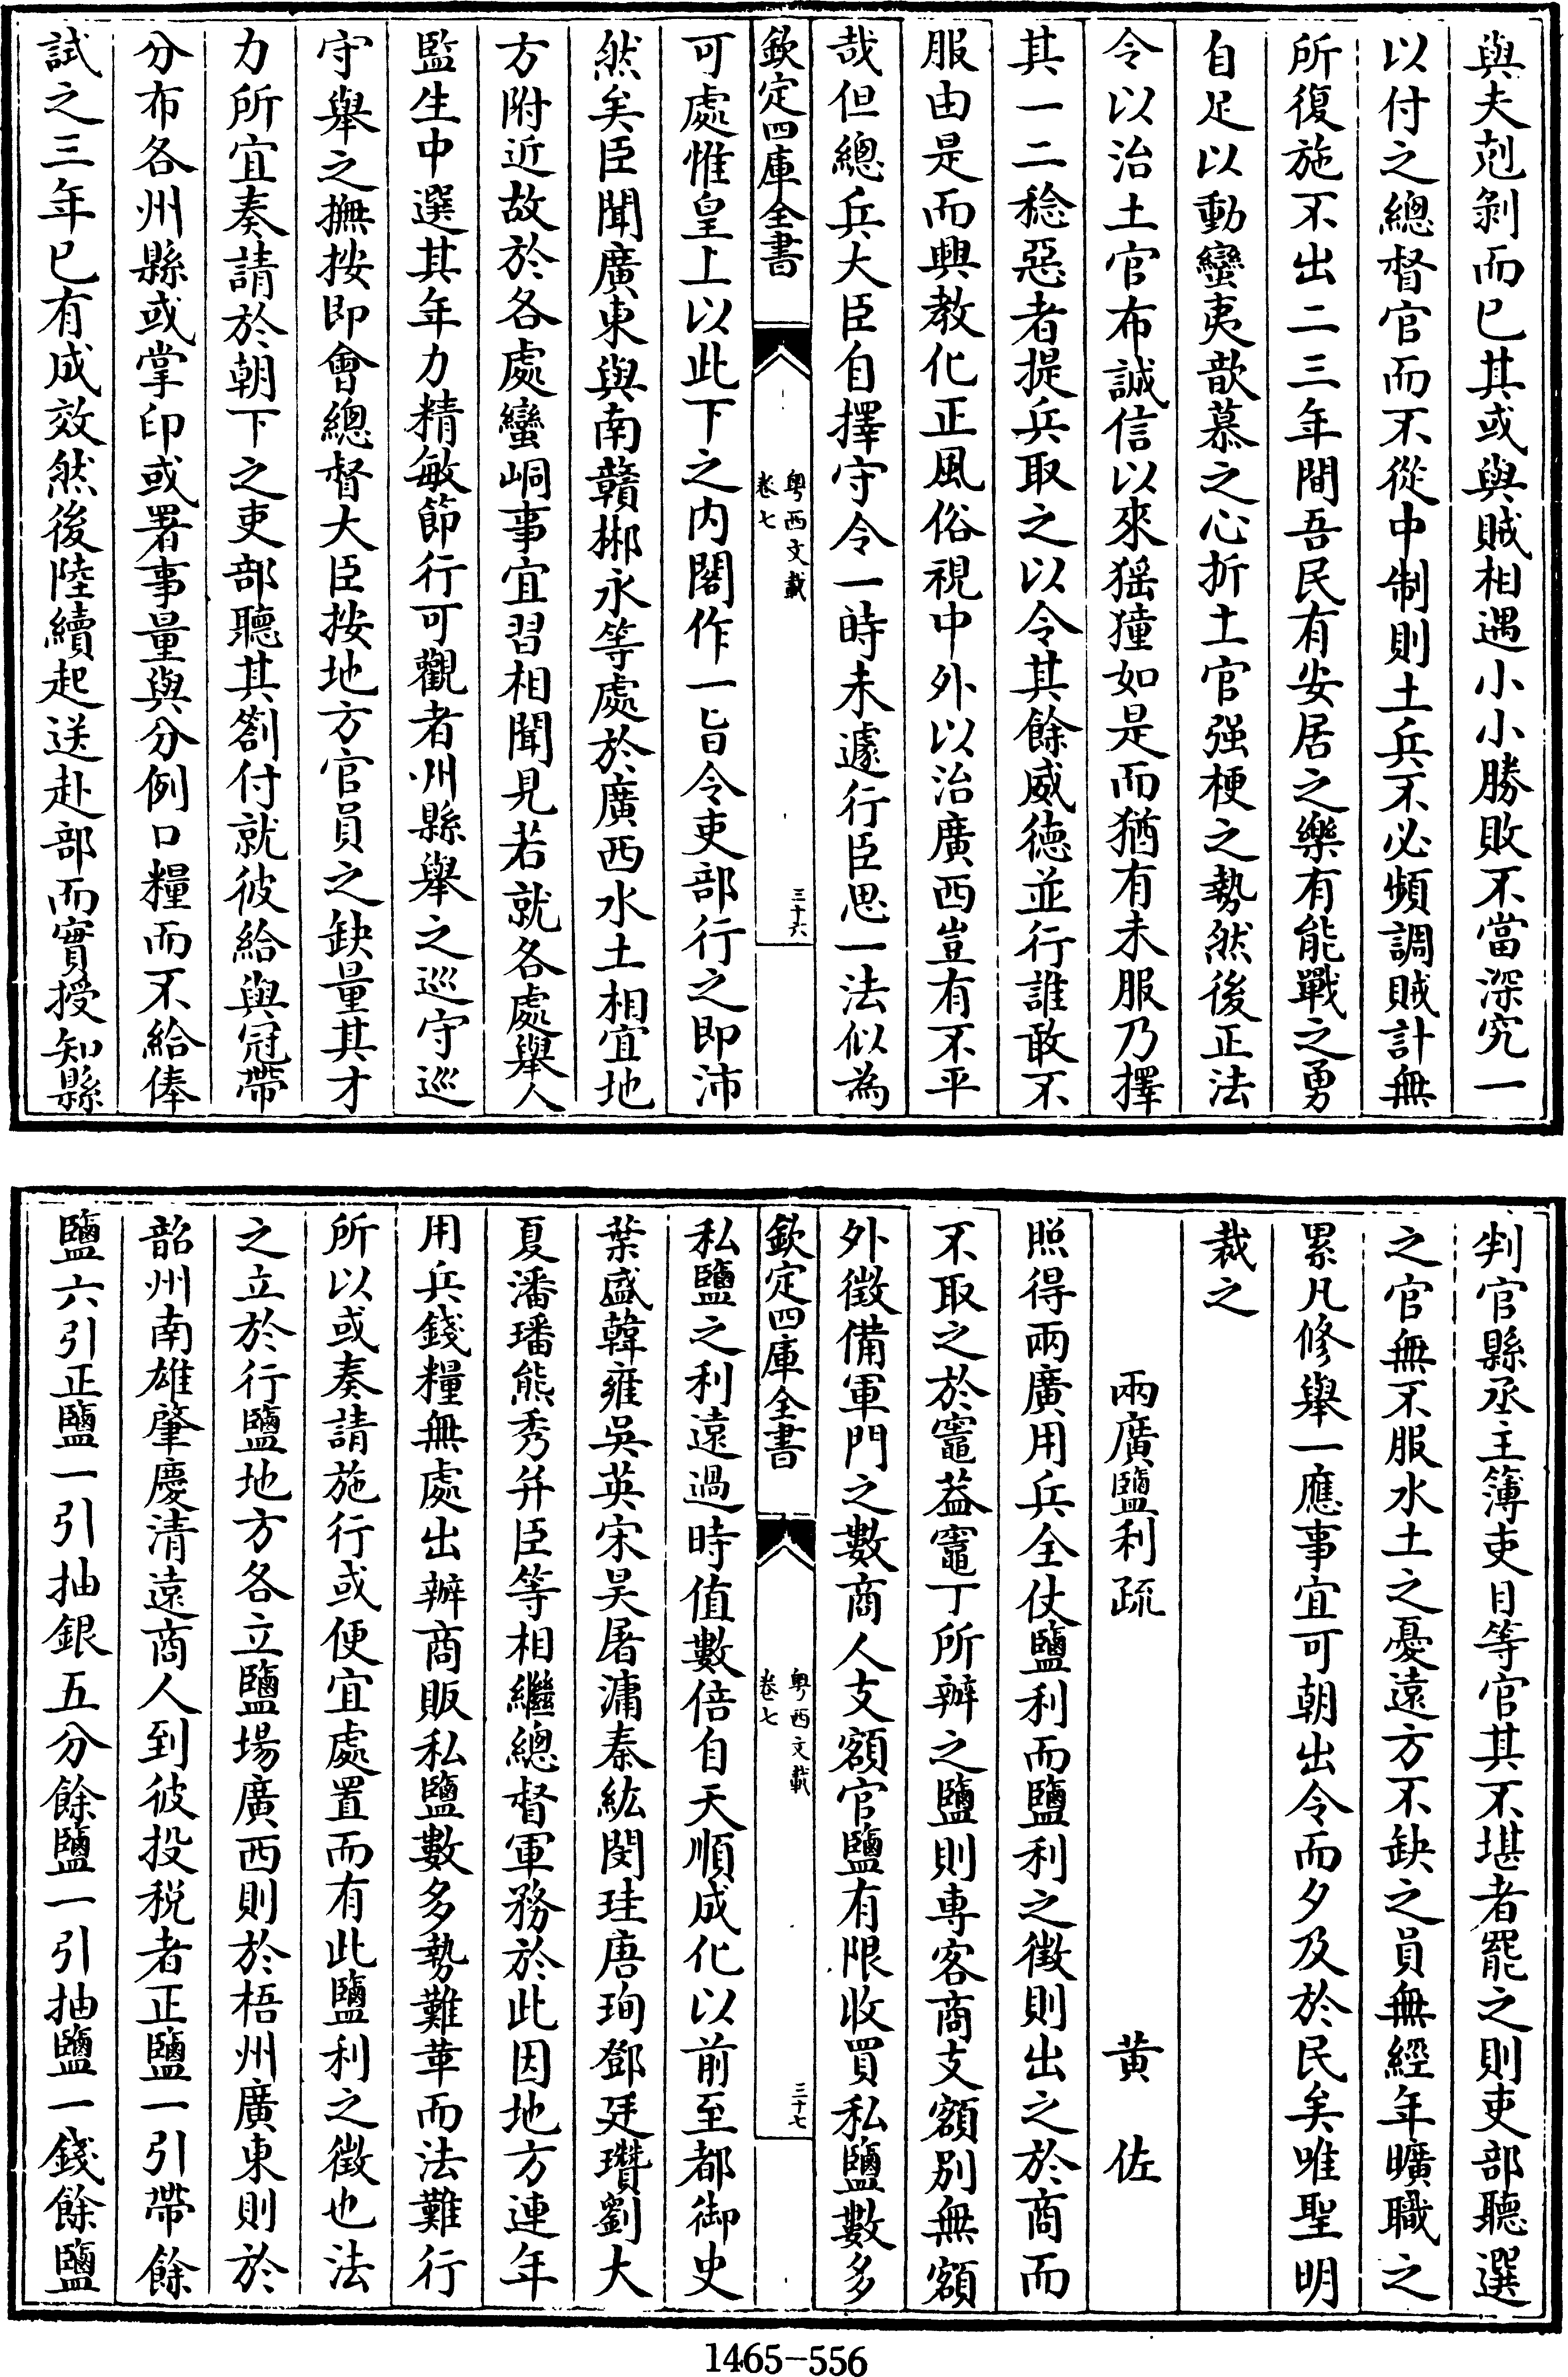 與夫剋剝而已其或與賊相遇小小勝敗不當深究一
以付之總督官而不從中制則土兵不必頻調賊計無
所復施不出二三年間吾民有安居之樂有能戰之勇
自足以動蠻夷歆慕之心折土官强梗之勢然後正法
令以治土官布誠信以來猺獞如是而猶有未服乃擇
其一二稔惡者提兵取之以令其餘威德並行誰敢不
服由是而興教化正風俗視中外以治廣西豈有不平
哉但總兵大臣自擇守令一時未遽行臣思一法似為
欽定四庫全書
粤西文載
卷七
三十六
可處惟皇上以此下之内閣作一旨令吏部行之即沛
然矣臣聞廣東與南贛郴永等處於廣西水土相宜地
方附近故於各處蠻峒事宜習相聞見若就各處舉人
監生中選其年力精敏節行可觀者州縣舉之巡守巡
守舉之撫按即會總督大臣按地方官員之缺量其才
力所宜奏請於朝下之吏部聽其劄付就彼給與冠帶
分布各州縣或掌印或署事量與分例口糧而不給俸
試之三年已有成效然後陸續起送赴部而實授知縣
判官縣丞主簿吏目等官其不堪者罷之則吏部聽選
之官無不服水土之憂遠方不缺之員無經年曠職之
累凡修舉一應事宜可朝出令而夕及於民矣唯聖明
裁之
兩廣鹽利疏 黄佐
照得兩廣用兵全仗鹽利而鹽利之徵則出之於商而
不取之於竈葢竈丁所辦之鹽則專客商支額别無額
外徵備軍門之數商人支額官鹽有限收買私鹽數多
欽定四庫全書
粤西文載
卷七
三十七
私鹽之利遠過時值數倍自天順成化以前至都御史
葉盛韓雍吳英宋旻屠滽秦紘閔珪唐珣鄧廷瓚劉大
夏潘璠熊秀并臣等相繼總督軍務於此因地方連年
用兵錢糧無處出辦商販私鹽數多勢難革而法難行
所以或奏請施行或便宜處置而有此鹽利之徵也法
之立於行鹽地方各立鹽場廣西則於梧州廣東則於
韶州南雄肇慶清遠商人到彼投税者正鹽一引帶餘
鹽六引正鹽一引抽銀五分餘鹽一引抽鹽一錢餘鹽
1465-556